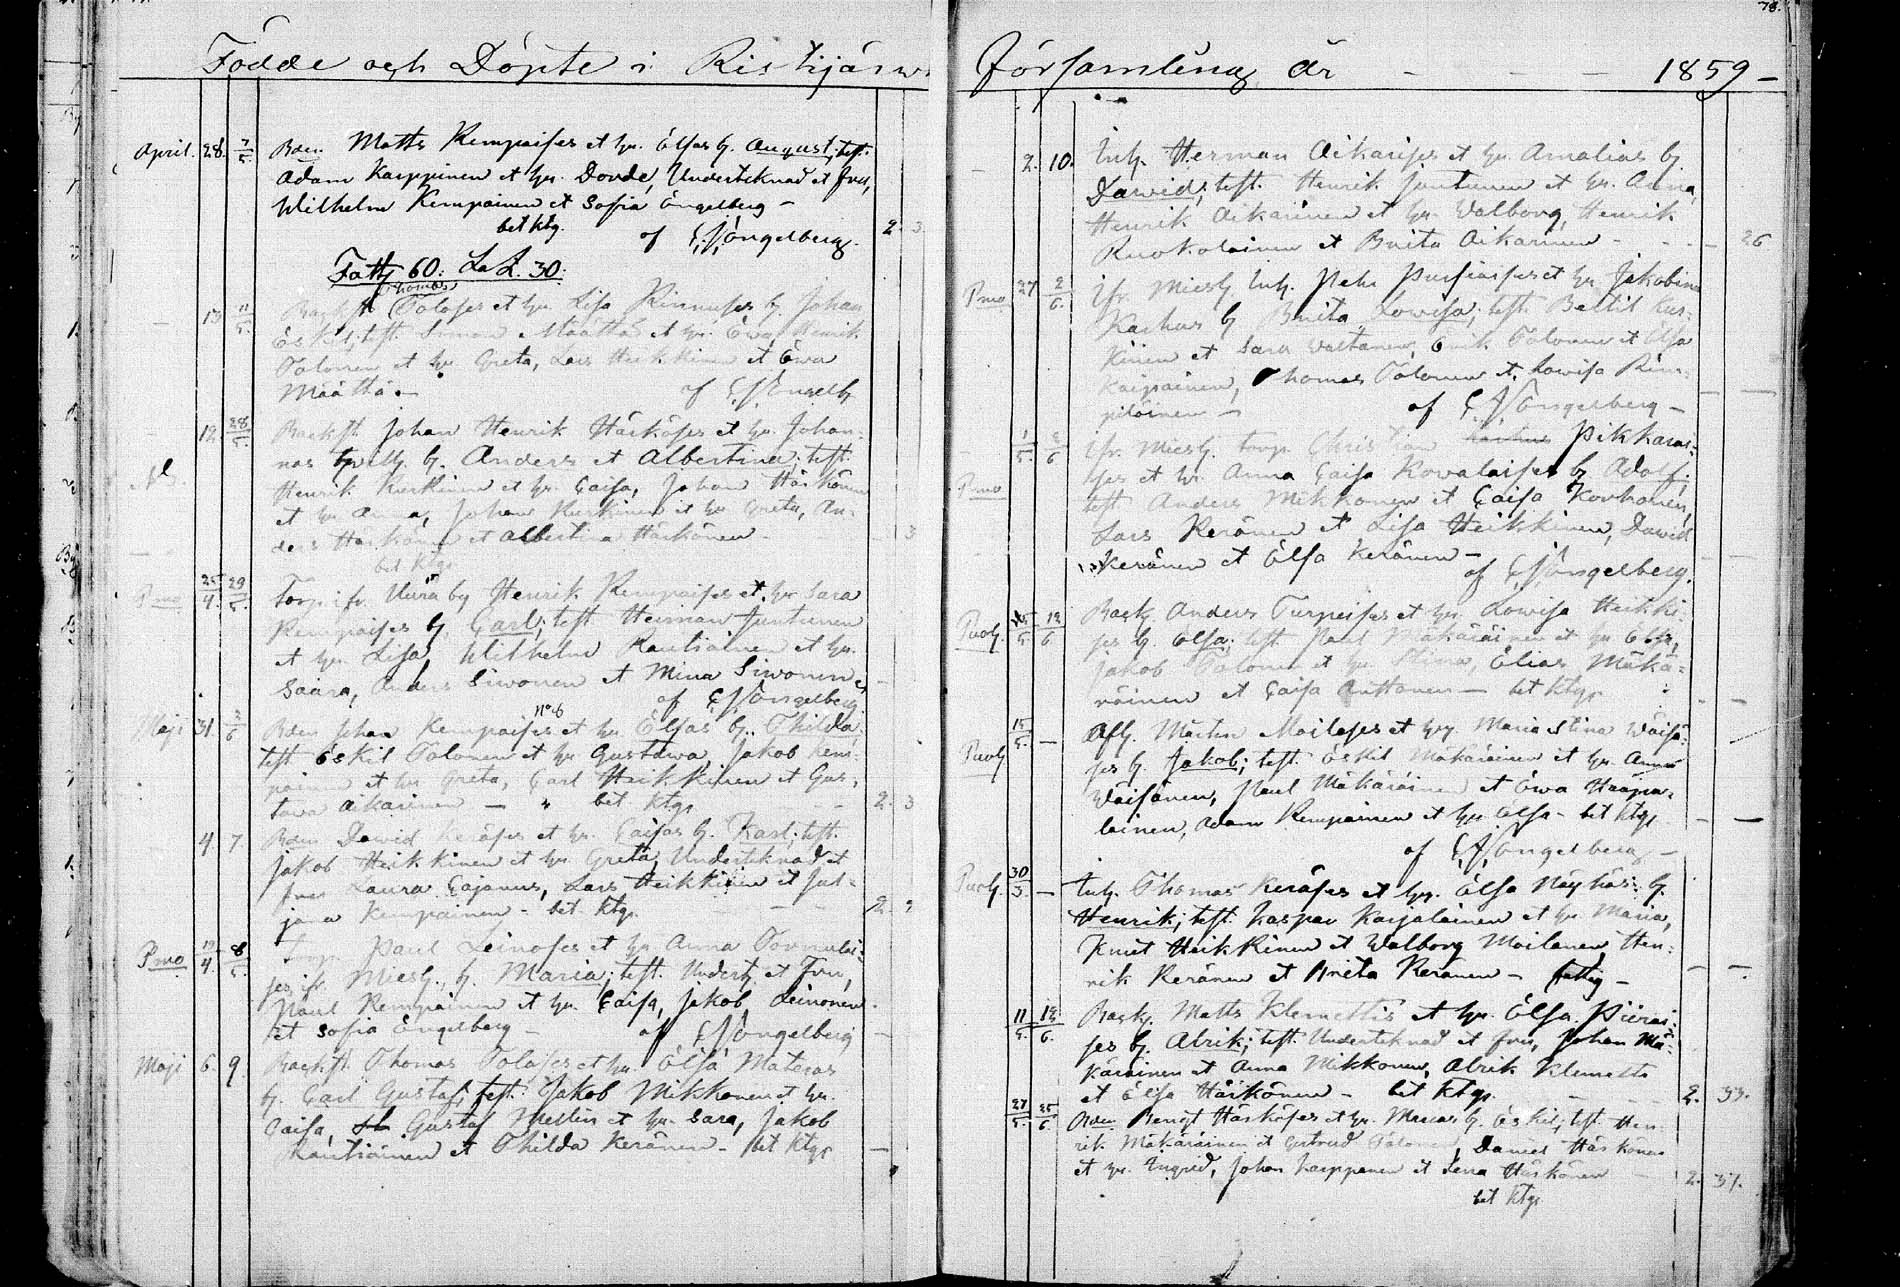 Födde och Döpte i Ristijärwi
April. 28. 7/5 Bden Matts Kempaises et hu. Elsas b. August; test.
Adam Karppinen et hu. Dorde, Underteknad et fru,
Wilhelm Kempainen et Sofia Engelberg –
bet ktg. af Engelberg. 2. 3.
Fatt 60: 30:
Thomas
13 11/5 Backst. Toloses et hu. Lisa Kinnuses b. Johan
Eskil; test. Simon Määttä et hu. Ewa, Henrik
Tolonen et hu Greta, Lars Heikkinen et Ewa
Määttä – af Engelb
12 28/5 Backst. Johan Henrik Härköses et hu. Johan-
nas b. Anders et Albertina; test.
Henrik Kurkinen et hu. Caisa, Johan Härkönen
et hu Anna, Johan Kurkinen et hu Greta, An-
ders Härkönen et Albertina Härkönen 3
bet ktgr
Pmo 25/4. 29/5. Torp. ifr. Uura by Henrik Kempaises et. hu Sara
Kempaises b. Carl; test. Herman Juntunen
et hu. Lisa, Wilhelm Rautiainen et hu.
Saara, Anders Siwonen et Mina Siwonen
af Engelberg
No 6
Maji 31. 2/6 Bden Johan Kempaises et hu Elsas b. Thilda;
test Eskil Tolonen et hu Gustawa, Jakob Kem-
painen et hu Greta, Carl Heikkinen et Gus-
tawa Aikarinen – bet. ktgr 2. 3
4 7 Bden Dawid Keräses et hu. Caisas b. Karl; test.
Jakob Heikkinen et hu Greta, Undertecknad et
fru Laura Cajanus, Lars Heikkinen et Jul-
jana Kempainen – bet. ktgr 2.
Pmo 8/5. Torp. Paul Leinoses et hu. Anna Tormulai-
ses ifr. Miesl. b. Maria; test. Undert. et fru,
Paul Kempainen et hu. Caisa, Jakob Leinonen
et Sofia Engelberg – af Engelberg
Maji 6. 9. Backst. Thomas Toloses et hu. Elsa Materas
b. Carl Gustaf; test. Jakob Mikkonen et hu.
Caisa, Gustaf Merlin et hu. Sara, Jakob
Rautiainen et Thilda Keränen – bet ktgr
78.
Församling år – – – 1859 –
2. 10. Inh. Herman Aikarises et hu. Amalias b.
Dawid; test. Henrik Juntunen et hu. Anna,
Henrik Aikarinen et hu. Walborg, Henrik
Ruokolainen et Brita Aikarinen – 26
Pmo 27 2/6. ifr. Miesl. Inh. Petr Pursiaises et hu Jakobina
Karhus b. Brita Lowisa; test. Bertil Kur-
kinen et Sara Wartanen, Erik Tolonen et Elsa
Kaipainen, Thomas Tolonen et. Lowisa Rim-
piläinen – af Engelberg –
Pmo 1/5. 2/6 ifr. Miesl. torp. Christian Pikkarai-
ses et hu. Anna Caisa Kovalaises b. Adolf;
test. Anders Mikkonen et Caisa Korhonen,
Lars Keränen et Lisa Heikkinen, Dawid
Keränen et Elsa Keränen – af Engelberg.
Puol. 12/6. Back. Anders Turpeises et hu. Lowisa Heikki-
ses b. Elsa; test. Paul Mäkäräinen et hu Ebba,
Jakob Tolonen et hu. Stina, Elias Mäkä-
räinen et Caisa Anttonen – bet ktgr
Puol 15/5. – Afl. Mårten Moilases et hu. Maria Stina Wäisä-
ses b. Jakob; test. Eskil Mäkäräinen et hu. Anna
Wäisänen, Paul Mäkäräinen et Ewa Haapa-
lainen, Adam Kempainen et hu Elsa – bet ktgr
af Engelberg –
Puol 30/3. – Inh. Thomas Keräses et hu. Elsa Näykäs; b.
Henrik; test. Kaspar Karjalainen et hu. Maria,
Knut Heikkinen et Walborg Moilanen, Hen-
rik Keränen et Brita Keränen – fattig –
11/5. 12/6. Back. Matts Klemettis et hu. Elsa Piirai-
ses b. Alrik; test. Undertecknad et fru, Johan Mä-
käräinen et Anna Mikkonen, Alrik Klemetti
et Elsa Härkönen – bet ktgr. 2. 33.
27/5. 25/6. Bden Bengt Härköses et hu. Marias b. Eskil; test. Hen-
rik Mäkäräinen et Gertrud Tolonen, Daniel Härkönen
et hu. Ingrid, Johan Karppanen et Lena Härkönen 2. 37.
bet ktgr